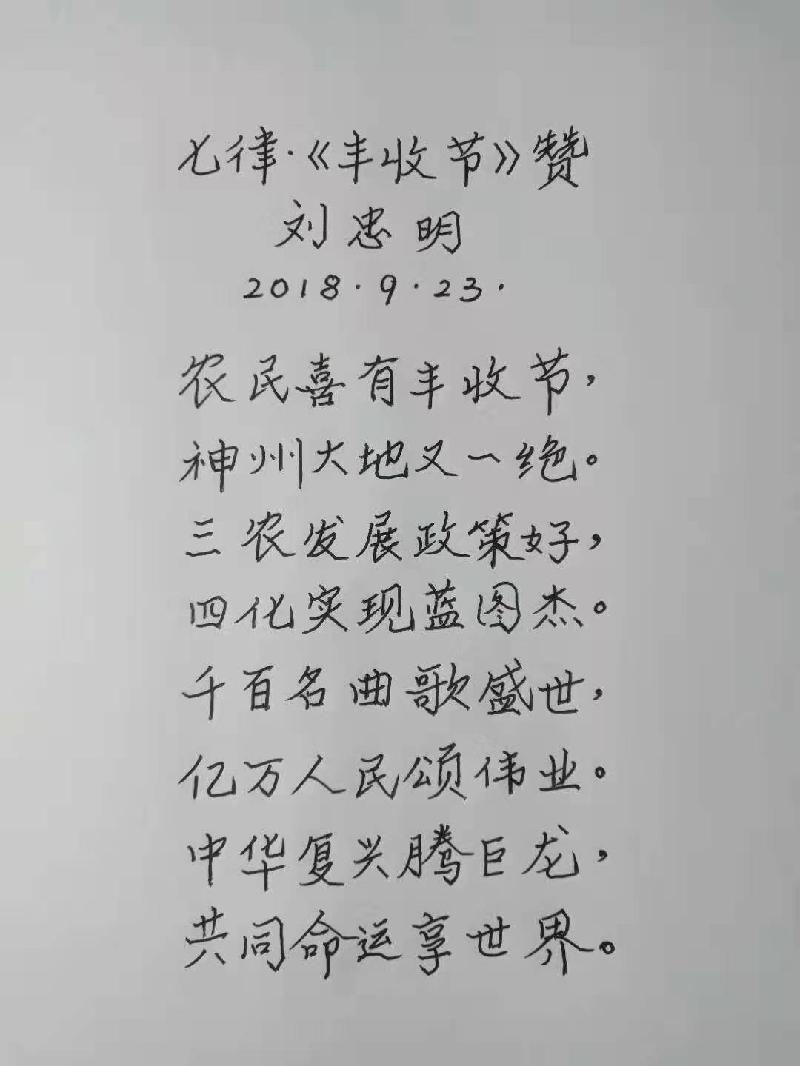 七律·《丰收节》赞
刘忠明
2018·9·23·
农民喜有丰收节，
神州大地又一绝。
三农发展政策好，
四化实现蓝图杰。
千百名曲歌盛世，
亿万人民颂伟业。
中华复兴腾巨龙，
共同命运享世界。